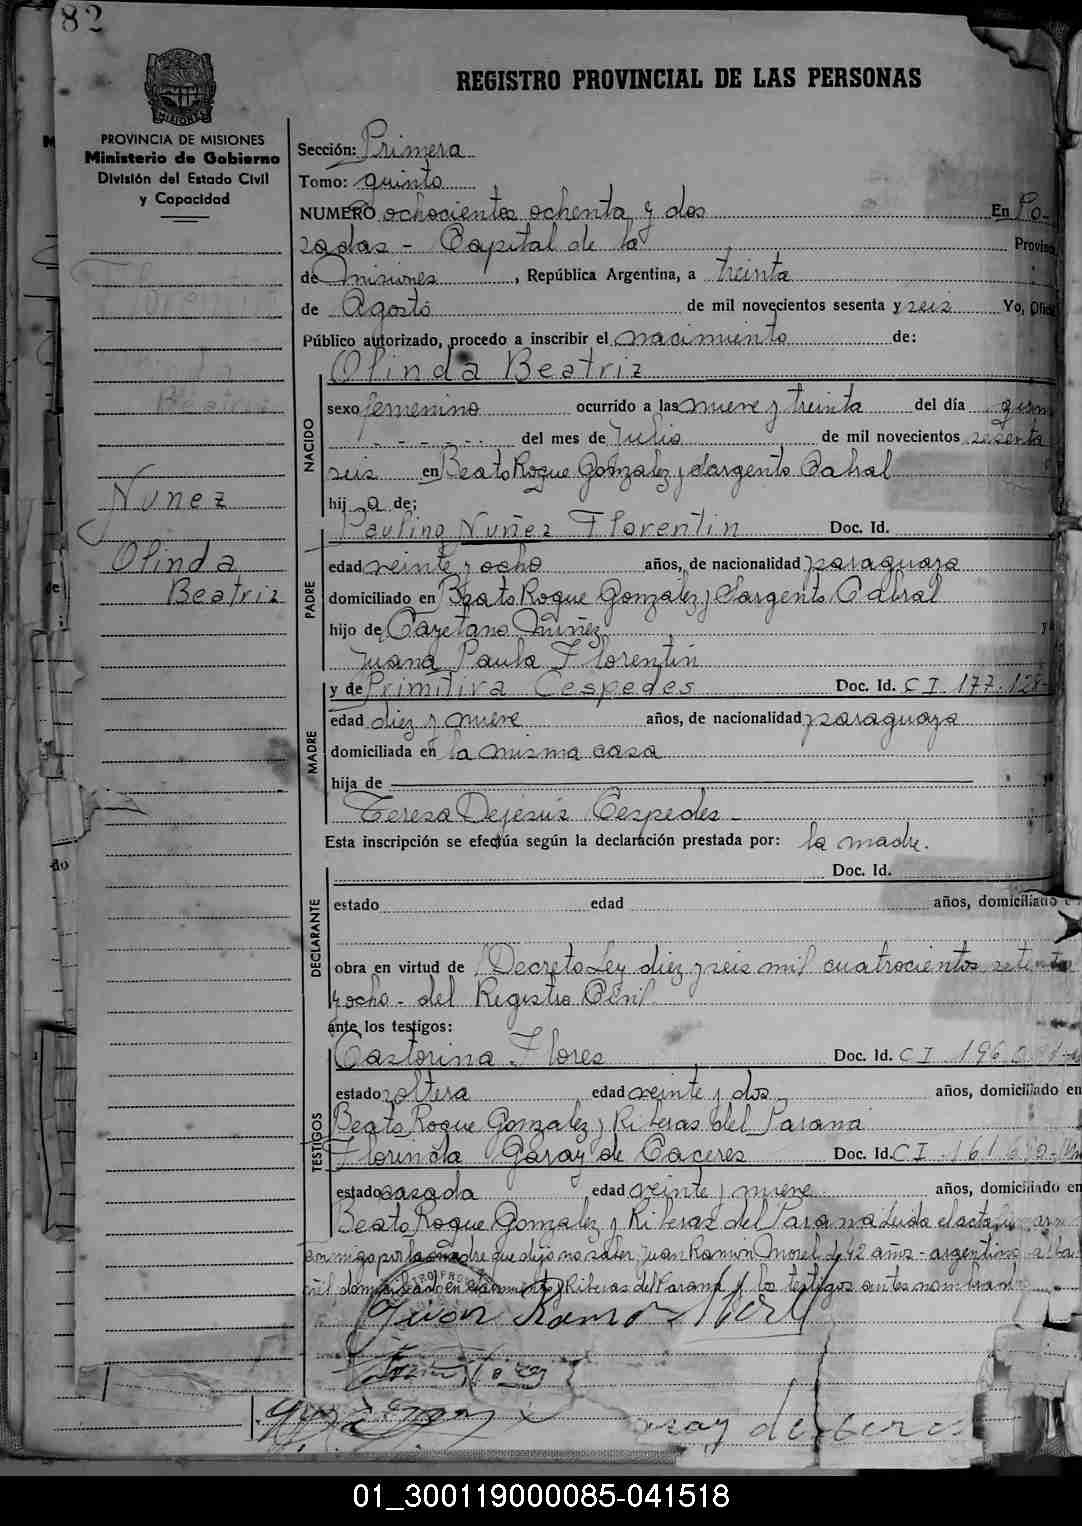 82
REGISTRO PROVINCIAL DE LAS PERSONAS
MISIONES
PROVINCIA DE MISIONES
Ministerio de Gobierno
División del Estado Civil
y Capacidad
Nuñez
Olinda
Beatriz
Sección: Primera
Tomo: quinto
NUMERO ochocientos ochenta y dos En Po-
sadas - Capital de la Provincia
de Misiones, República Argentina, a treinta
de Agosto de mil novecientos sesenta y seis Yo, Oficial
Público autorizado, procedo a inscribir el nacimiento de:
Olinda Beatriz
NACIDO
sexo femenino ocurrido a las nueve y treinta del día
del mes de Julio de mil novecientos sesenta
seis en Beato Roque Gonzalez y Sargento Cabral
hij a de:
Paulino Nuñez Florentin Doc. Id.
PADRE
edad veinte y ocho años, de nacionalidad paraguaya
domiciliado en Beato Roque Gonzalez y Sargento Cabral
hijo de Cayetano Nuñez y
Juana Paula Florentin
y de Primitiva Cespedes Doc. Id. C I 177.128-
MADRE
edad diez y nueve años, de nacionalidad paraguaya
domiciliada en la misma casa
hija de
Teresa Dejesús Cespedes
Esta inscripción se efectúa según la declaración prestada por: la madre.
DECLARANTE
Doc. Id.
estado edad años, domiciliado
obra en virtud de Decreto Ley diez y seis mil cuatrocientos setenta
y ocho - del Registro Civil.
ante los testigos:
TESTIGOS
Castorina Flores Doc. Id. C I 196
estado soltera edad veinte y dos años, domiciliado en
Beato Roque Gonzalez y Riberas del Parana
Florinda Garay de Caceres Doc. Id. C I 161
estado casada edad veinte y nueve años, domiciliado en
Beato Roque Gonzalez y Riberas del Parana Leida el acta
por la madre que dijo no saber, Juan Ramón Morel de 42 años - argentino
domiciliado en y Riberas del Parana y los testigos antes nombrados
Juan Ramon Morel
Garay de Caceres
01_300119000085-041518